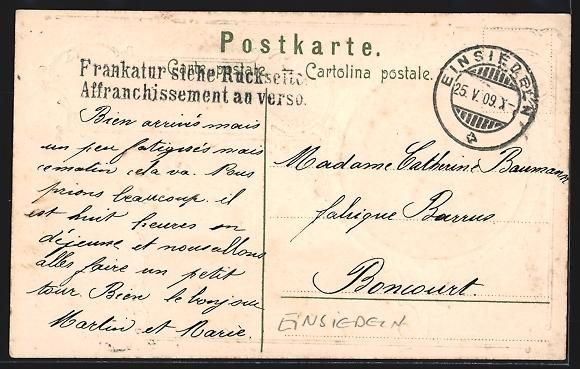 Postkarte.
Carte postale. — Cartolina postale.
Frankatur siehe Rückseite.
Affranchissement au verso.
EINSIEDELN
25. V. 09. X-
Bien arrivés mais
un peu fatigués mais
ce matin cela va. Nous
prions beaucoup. il
est huit heures on
déjeune et nous allons
aller faire un petit
tour. Bien le bonjour
Martin et Marie.
Madame Catherine Baumann
fabrique Burrus
Boncourt.
EINSIEDELN